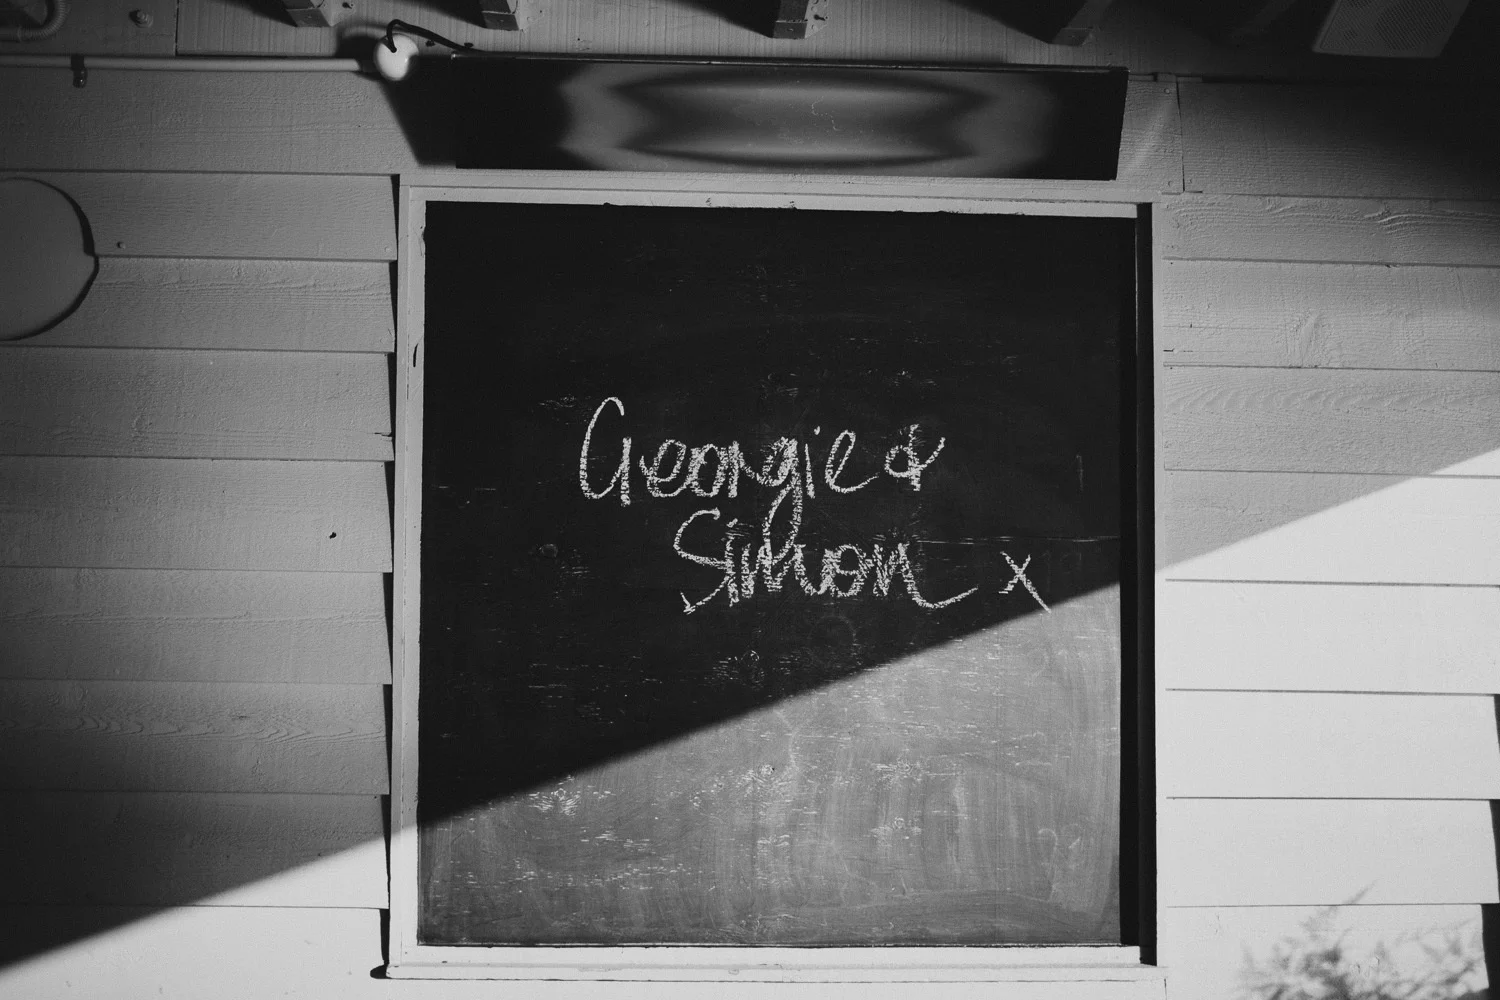 Georgie &
Simon x